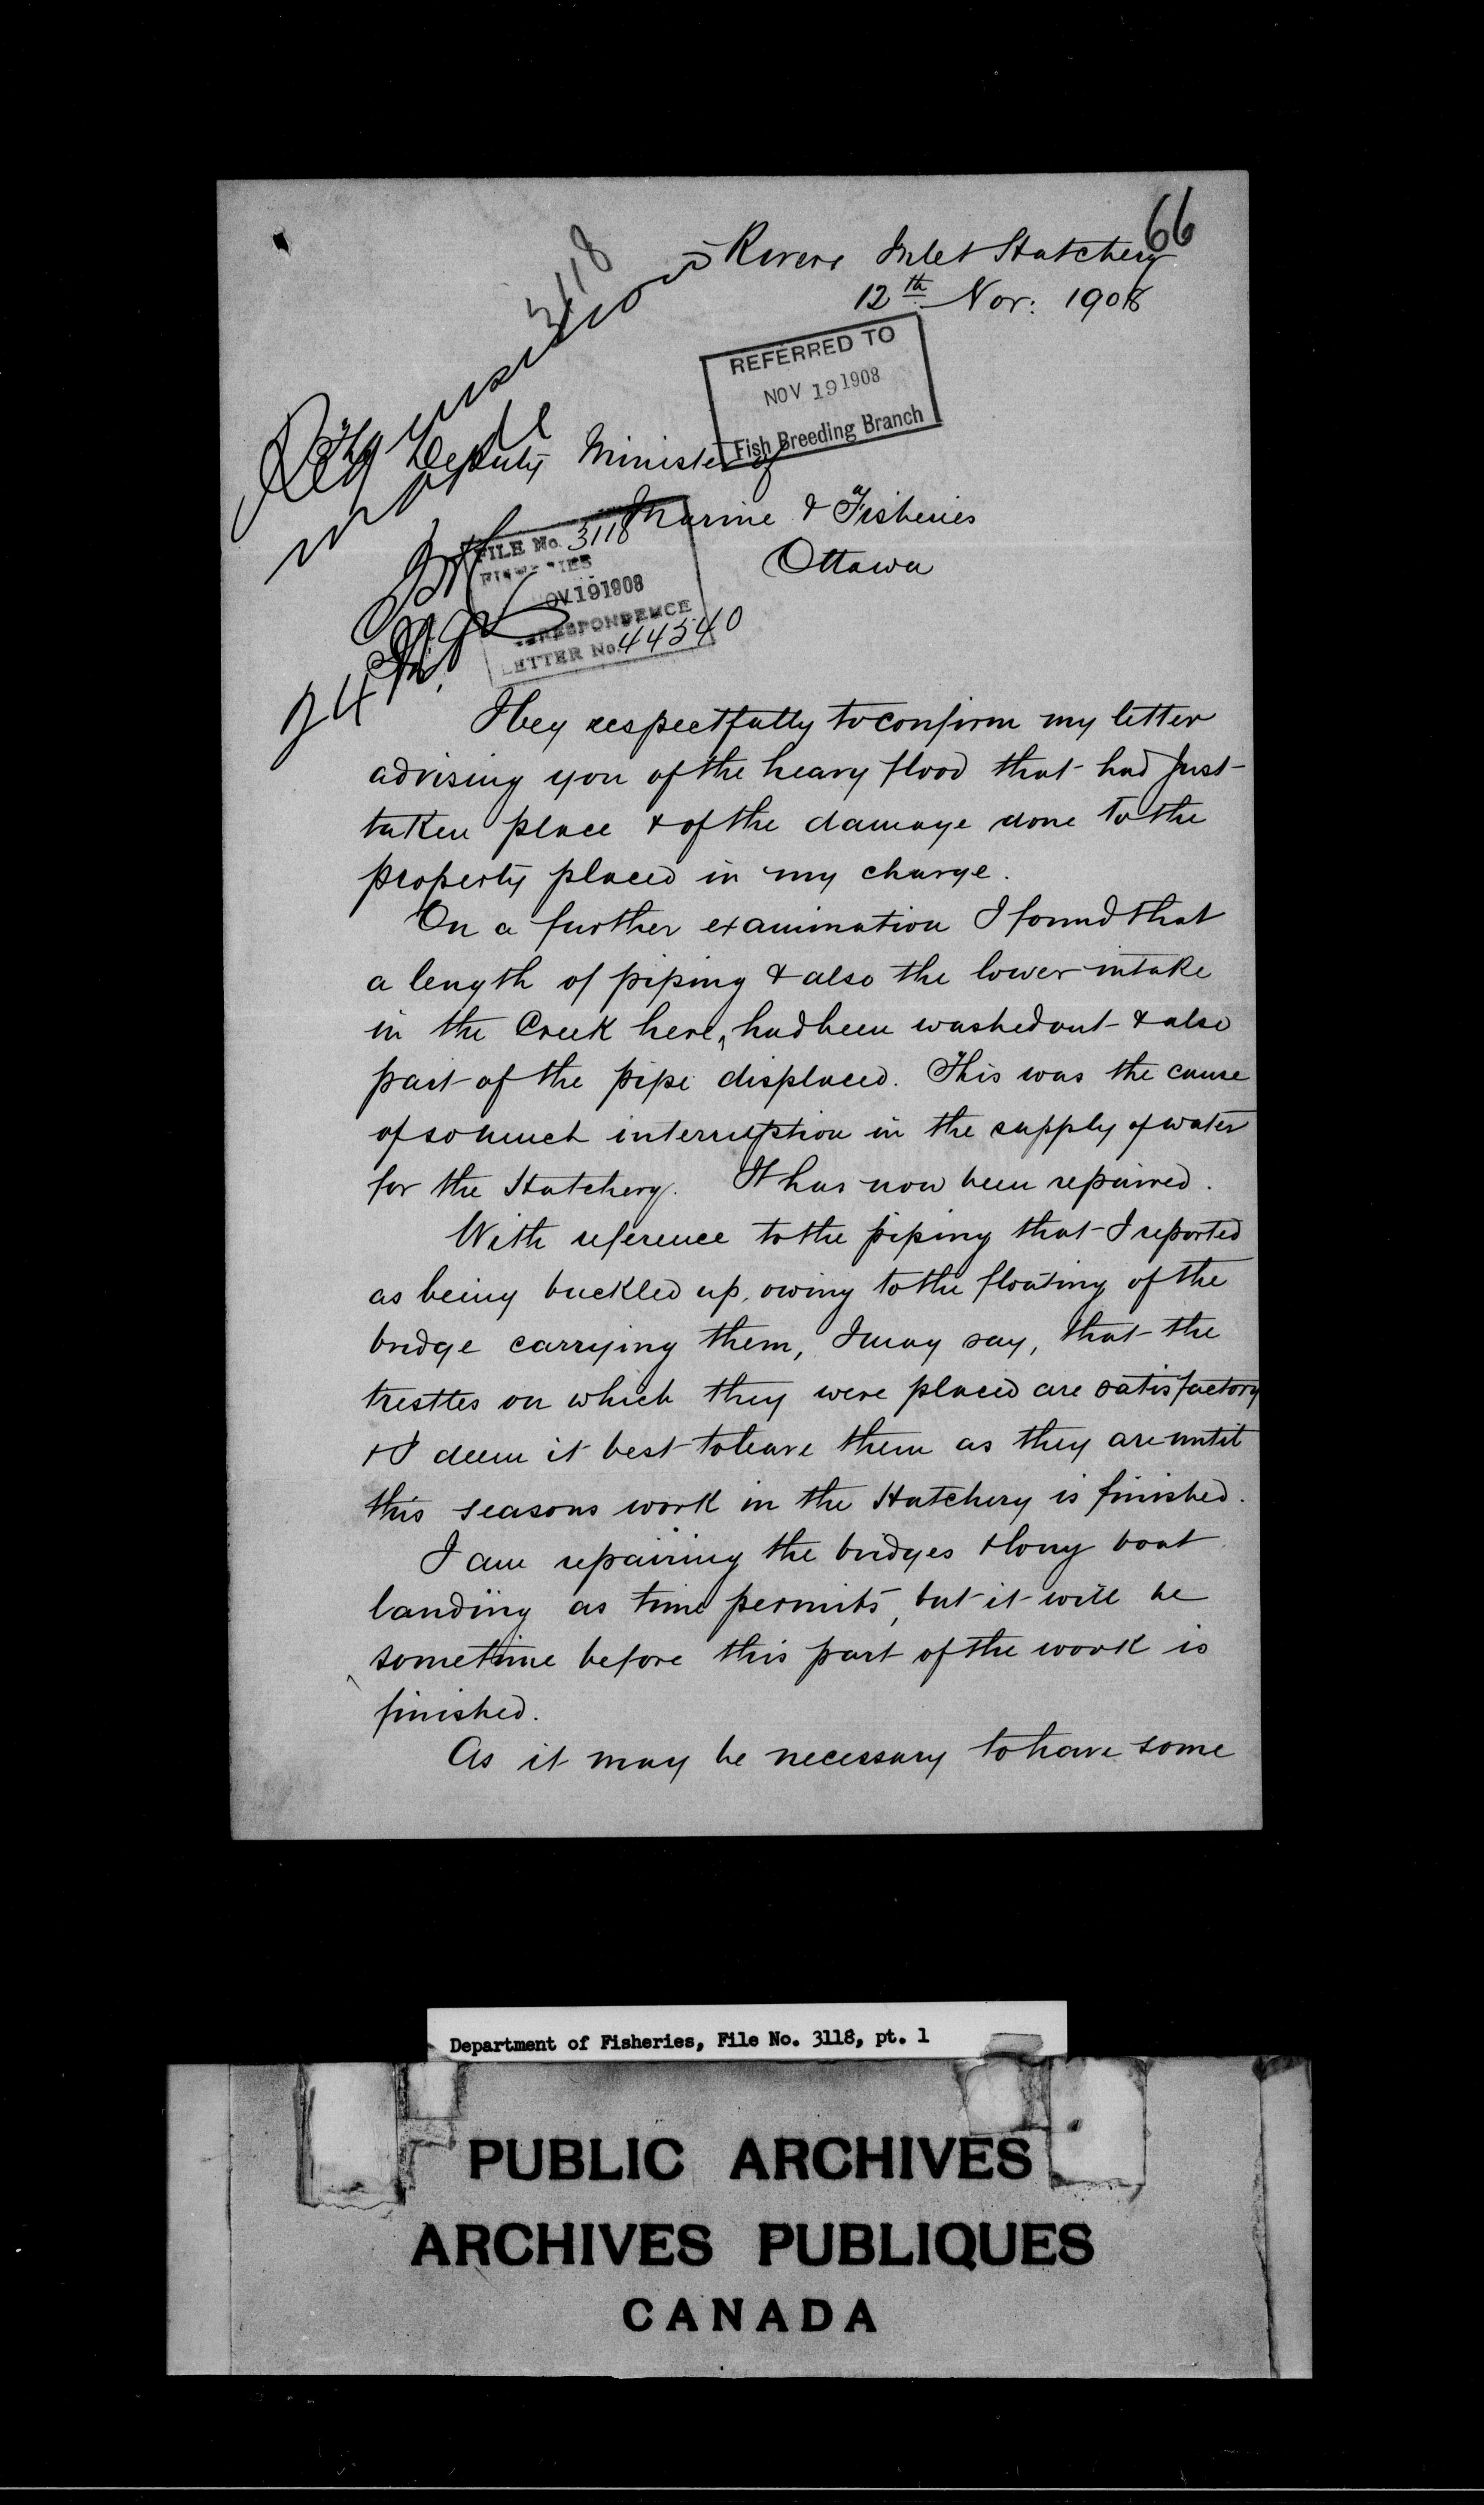 66
Rivers Inlet Hatchery
12th Nov: 1908
3118
REFERRED TO
NOV 19 1908
Fish Breeding Branch
The Deputy Minister of
Marine & Fisheries
Ottawa
FILE No. 3118
FISHERIES
NOV 19 1908
CORRESPONDENCE
LETTER No. 44540
I beg respectfully to confirm my letter
advising you of the heavy flood that had just
taken place & of the damage done to the
property placed in my charge.
On a further examination I found that
a length of piping & also the lower intake
in the Creek here, had been washed out & also
part of the pipe displaced. This was the cause
of so much interruption in the supply of water
for the Hatchery. It has now been repaired.
With reference to the piping that I reported
as being buckled up, owing to the floating of the
bridge carrying them, I may say, that the
trestles on which they were placed are satisfactory
& I deem it best to leave them as they are until
this seasons work in the Hatchery is finished.
I am repairing the bridges & long boat
landing as time permits, but it will be
sometime before this part of the work is
finished.
As it may be necessary to have some
Department of Fisheries, File No. 3118, pt. 1
PUBLIC ARCHIVES
ARCHIVES PUBLIQUES
CANADA